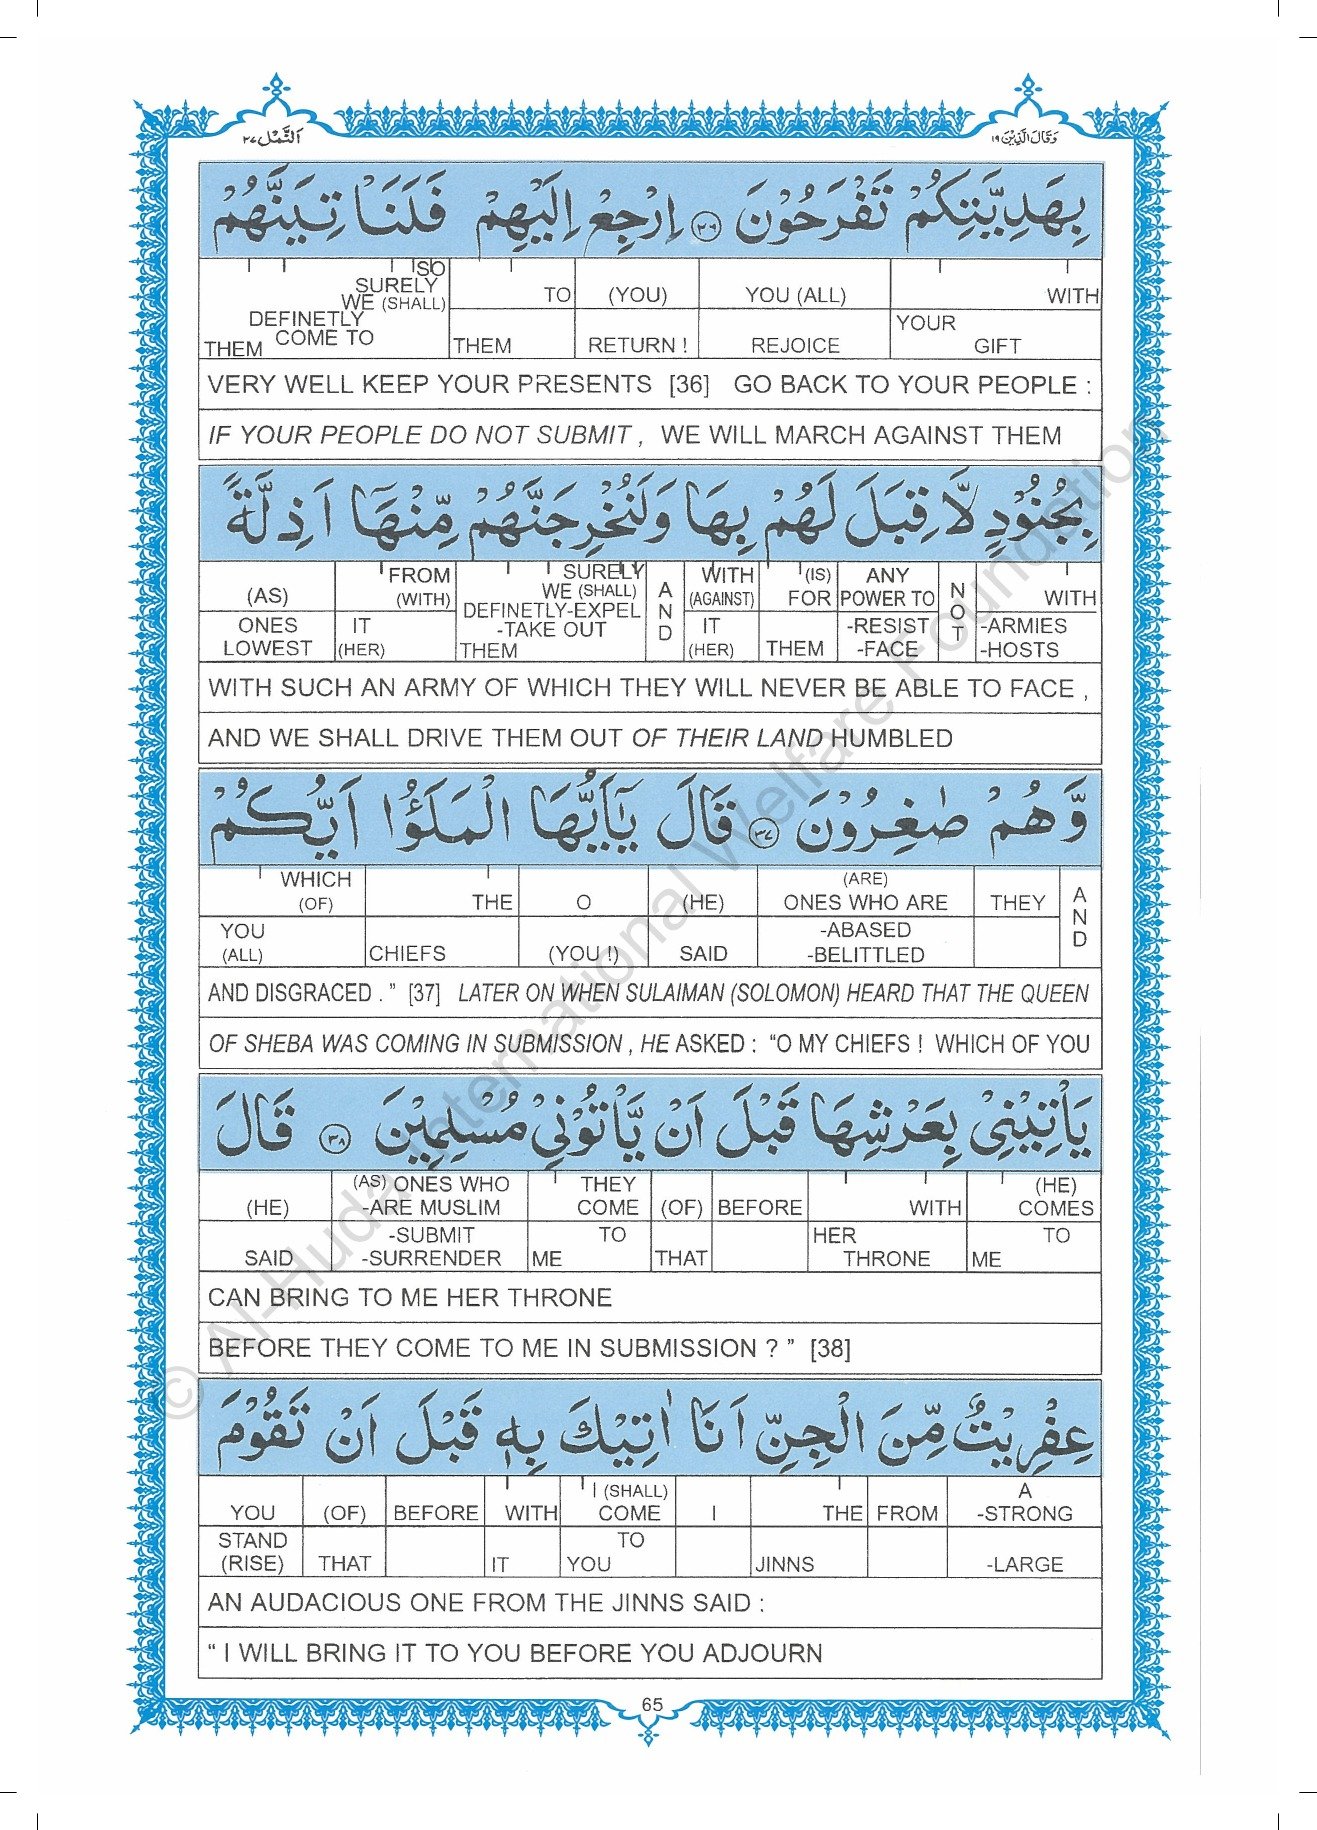 اَلنَّمْل ٢٧
وَقَالَ الَّذِيْنَ ١٩
بِهَدِيَّتِكُمْ تَفْرَحُوْنَ ٣٦ اِرْجِعْ اِلَيْهِمْ فَلَنَاْتِيَنَّهُمْ
SO SURELY WE (SHALL) DEFINETLY COME TO THEM
TO THEM
(YOU) RETURN !
YOU (ALL) REJOICE
WITH YOUR GIFT
VERY WELL KEEP YOUR PRESENTS [36] GO BACK TO YOUR PEOPLE :
IF YOUR PEOPLE DO NOT SUBMIT , WE WILL MARCH AGAINST THEM
بِجُنُوْدٍ لَّا قِبَلَ لَهُمْ بِهَا وَلَنُخْرِجَنَّهُمْ مِّنْهَآ اَذِلَّةً
(AS) ONES LOWEST
FROM (WITH) IT (HER)
SURELY WE (SHALL) DEFINETLY-EXPEL -TAKE OUT THEM
AND
WITH (AGAINST) IT (HER)
(IS) FOR THEM
ANY POWER TO -RESIST -FACE
NOT
WITH -ARMIES -HOSTS
WITH SUCH AN ARMY OF WHICH THEY WILL NEVER BE ABLE TO FACE ,
AND WE SHALL DRIVE THEM OUT OF THEIR LAND HUMBLED
وَّهُمْ صٰغِرُوْنَ ٣٧ قَالَ يٰٓاَيُّهَا الْمَلَؤُا اَيُّكُمْ
WHICH (OF) YOU (ALL)
THE CHIEFS
O (YOU !)
(HE) SAID
(ARE) ONES WHO ARE -ABASED -BELITTLED
THEY
AND
AND DISGRACED . ” [37] LATER ON WHEN SULAIMAN (SOLOMON) HEARD THAT THE QUEEN
OF SHEBA WAS COMING IN SUBMISSION , HE ASKED : “O MY CHIEFS ! WHICH OF YOU
يَاْتِيْنِيْ بِعَرْشِهَا قَبْلَ اَنْ يَّاْتُوْنِيْ مُسْلِمِيْنَ ٣٨ قَالَ
(HE) SAID
(AS) ONES WHO -ARE MUSLIM -SUBMIT -SURRENDER
THEY COME TO ME
(OF) THAT
BEFORE
WITH HER THRONE
(HE) COMES TO ME
CAN BRING TO ME HER THRONE
BEFORE THEY COME TO ME IN SUBMISSION ? ” [38]
عِفْرِيْتٌ مِّنَ الْجِنِّ اَنَا اٰتِيْكَ بِهٖ قَبْلَ اَنْ تَقُوْمَ
YOU STAND (RISE)
(OF) THAT
BEFORE
WITH IT
I (SHALL) COME TO YOU
I
THE JINNS
FROM
A -STRONG -LARGE
AN AUDACIOUS ONE FROM THE JINNS SAID :
“ I WILL BRING IT TO YOU BEFORE YOU ADJOURN
65
© Al-Huda International Welfare Foundation